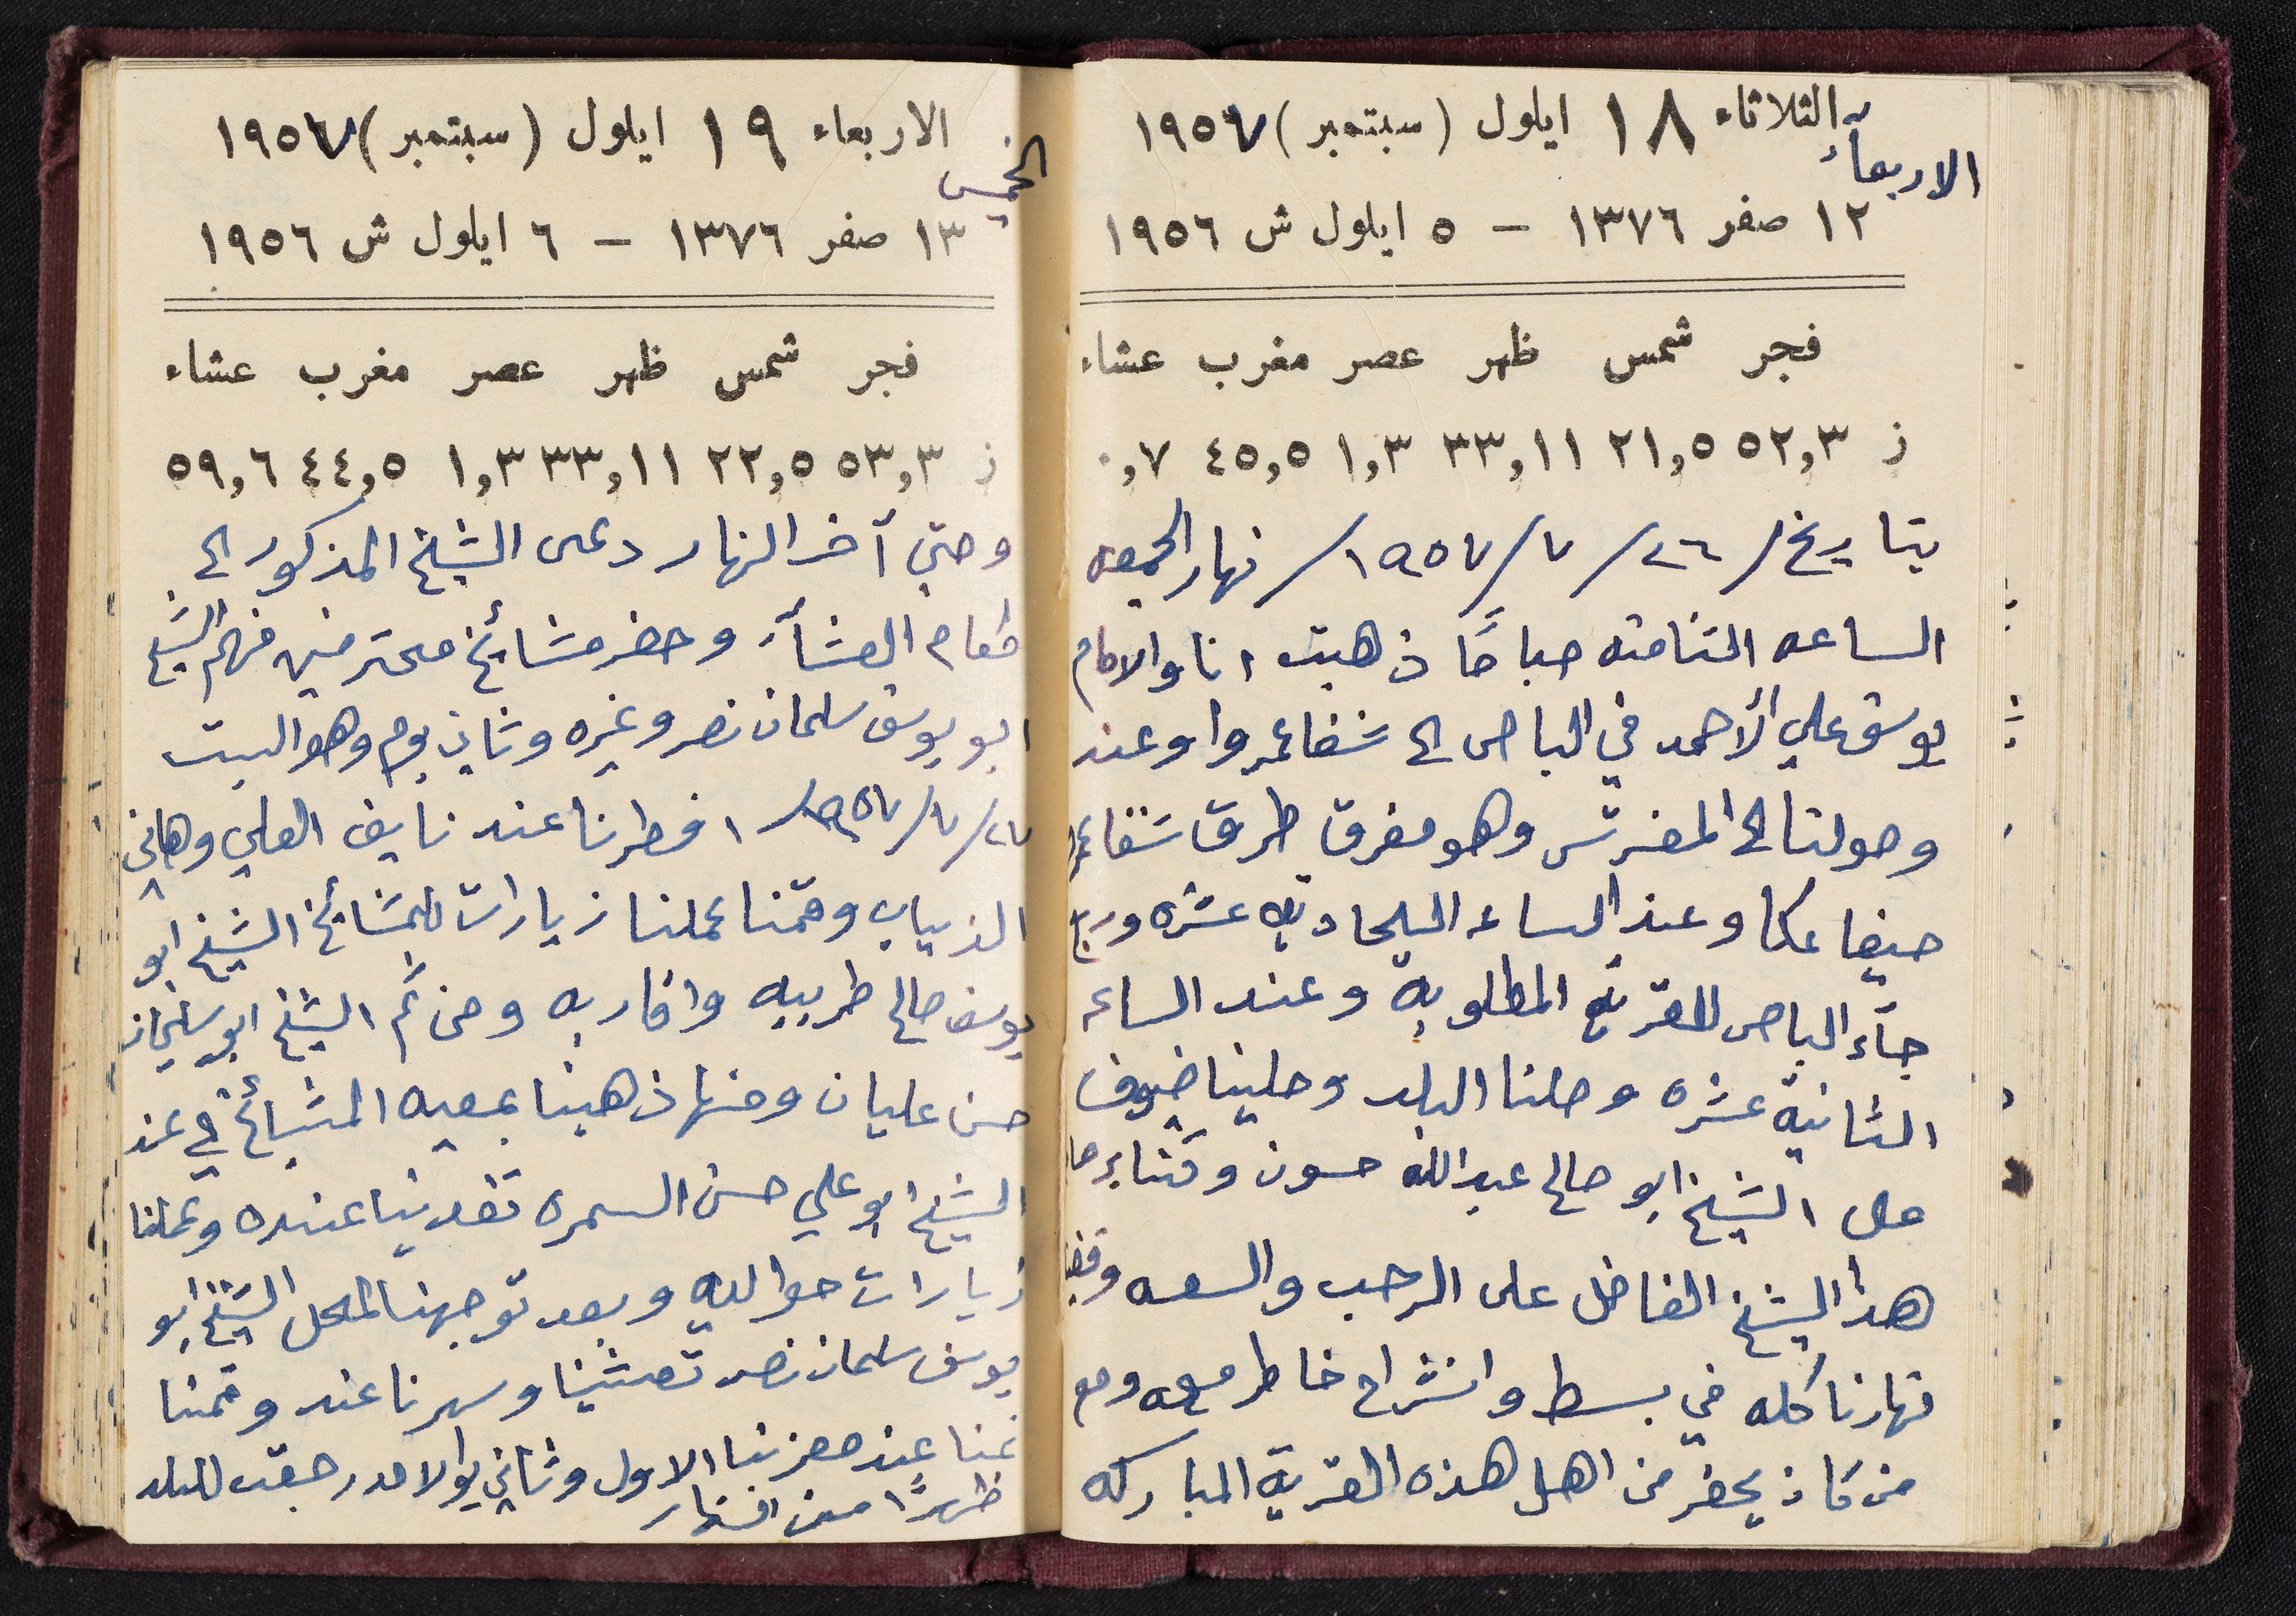 الثلاثاء ١٨ ايلول (سبتمبر) ١٩٥٧
الاربعاء
١٢ صفر ١٣٧٦ – ٥ ايلول ش ١٩٥٦
فجر شمس ظهر عصر مغرب عشاء
ز ٥٢,٣ ٢١,٥ ٣٣,١١ ١,٣ ٤٥,٥ ٠,٧
بتاريخ / ٢٦ / ٧ / ١٩٥٧ / نهار الجمعه
الساعه الثامنه صباحًا ذهبت انا والامام
يوسف علي الأحمد في الباص الى شفاعمروا وعند
وصولنا الى المفرتس وهو مفرق طريق شفاعمر
حيفا عكا وعند الساعه الحاديه عشره وربع
جآء الباص للقريه المطلوبه وعند الساعه
الثانية عشره وصلنا البلد وحلينا ضيوف
على الشيخ ابو صالح عبدالله حسون
هذا الشيخ الفاضل على الرحب والسعه وقضينا
نهارنا كله في بسط وانشراح خاطر معه ومع
من كان يحضر من اهل هذه القرية المباركه
الاربعاء ١٩ ايلول (سبتمبر) ١٩٥٧
الخميس
١٣ صفر ١٣٧٦ – ٦ ايلول ش ١٩٥٦
فجر شمس ظهر عصر مغرب عشاء
ز ٥٣,٣ ٢٢,٥ ٣٣,١١ ١,٣ ٤٤,٥ ٥٩,٦
وحتي آخر النهار دعى الشيخ المذكور الى
طعام العشآء وحضر مشائخ محترمين منهم الشيخ
ابو يوسف سلمان نصر وغيره وثاني يوم وهو السبت
٢٧ / ٧ / ١٩٥٧ افطرنا عند نايف العلي وهاني
الذياب وقمنا عملنا زيارات للمشائخ الشيخ ابو
يوسف صالح طربيه واقاربه ومن ثم الشيخ ابو سليمان
حسن عليان ومنها ذهبنا بمعيه المشائخ عند
الشيخ ابو علي حسن السمره تغدينا عنده وعملنا
زيارات حواليه وبعد توجهنا لمحل الشيخ ابو
يوسف سلمان نصر تعشينا وسهرنا عنده وقمنا
نمنا عند معزبنا الاول وثاني يوم الاحد رجعت للبلد
ظهرًا